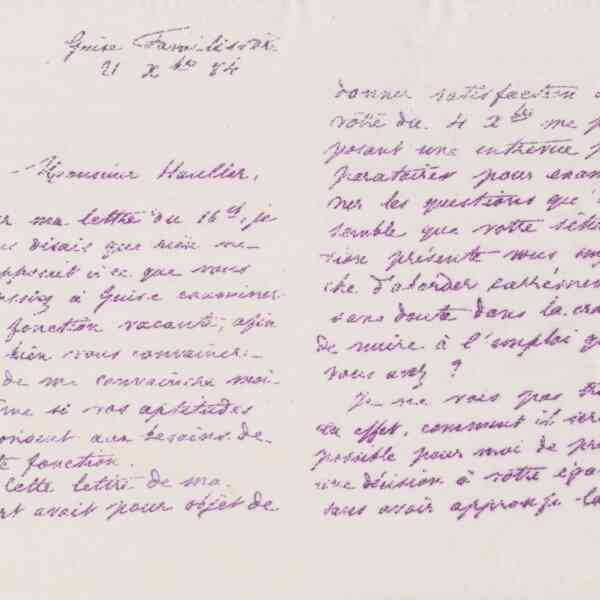 Guise Familistère
21 Xbre 84
Monsieur Haullier,
ma lettre du 16 ct, je
disais que rien ne
à ce que vous
à Guise examiner
fonction vacante, afin
bien vous convaincre
de me convaincre moi-
si vos aptitudes
aux besoins de
fonction.
Cette lettre de ma
avait pour objet de
donner satisfaction
vôtre du 4 Xbre me
posant une entrevue
paratoires pour exami
ner les questions que
semble que votre situa
tion présente vous
che d'aborder carrément
sans doute dans la
de nuire à l'emploi
vous avez ?
Je ne vois pas
en effet, comment il
possible pour moi de
une décision à votre
sans avoir approfondi